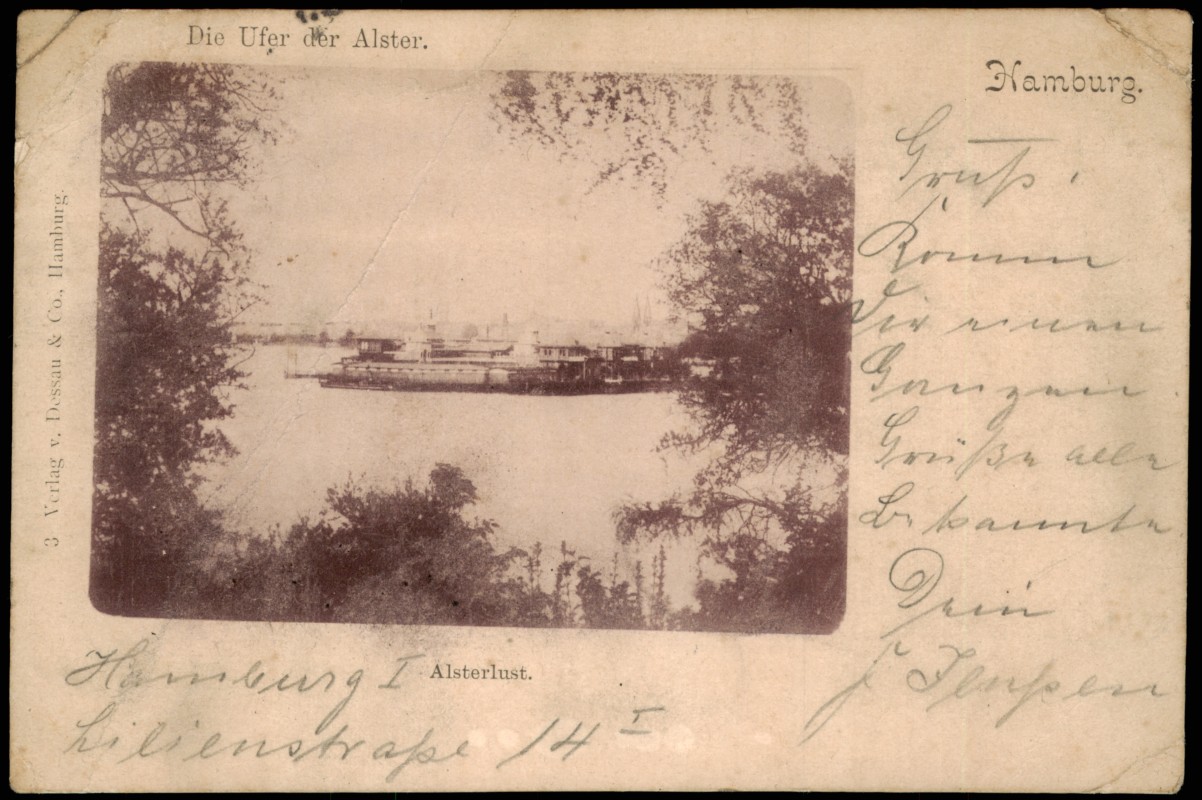 Die Ufer der Alster.
Hamburg.
Gruß.
Komm
Dir einen
Ganzen
Grüße alle
Bekannte
Dein
3 Verlag v. Dessau & Co., Hamburg.
Alsterlust.
Hamburg I
Lilienstraße 14 I